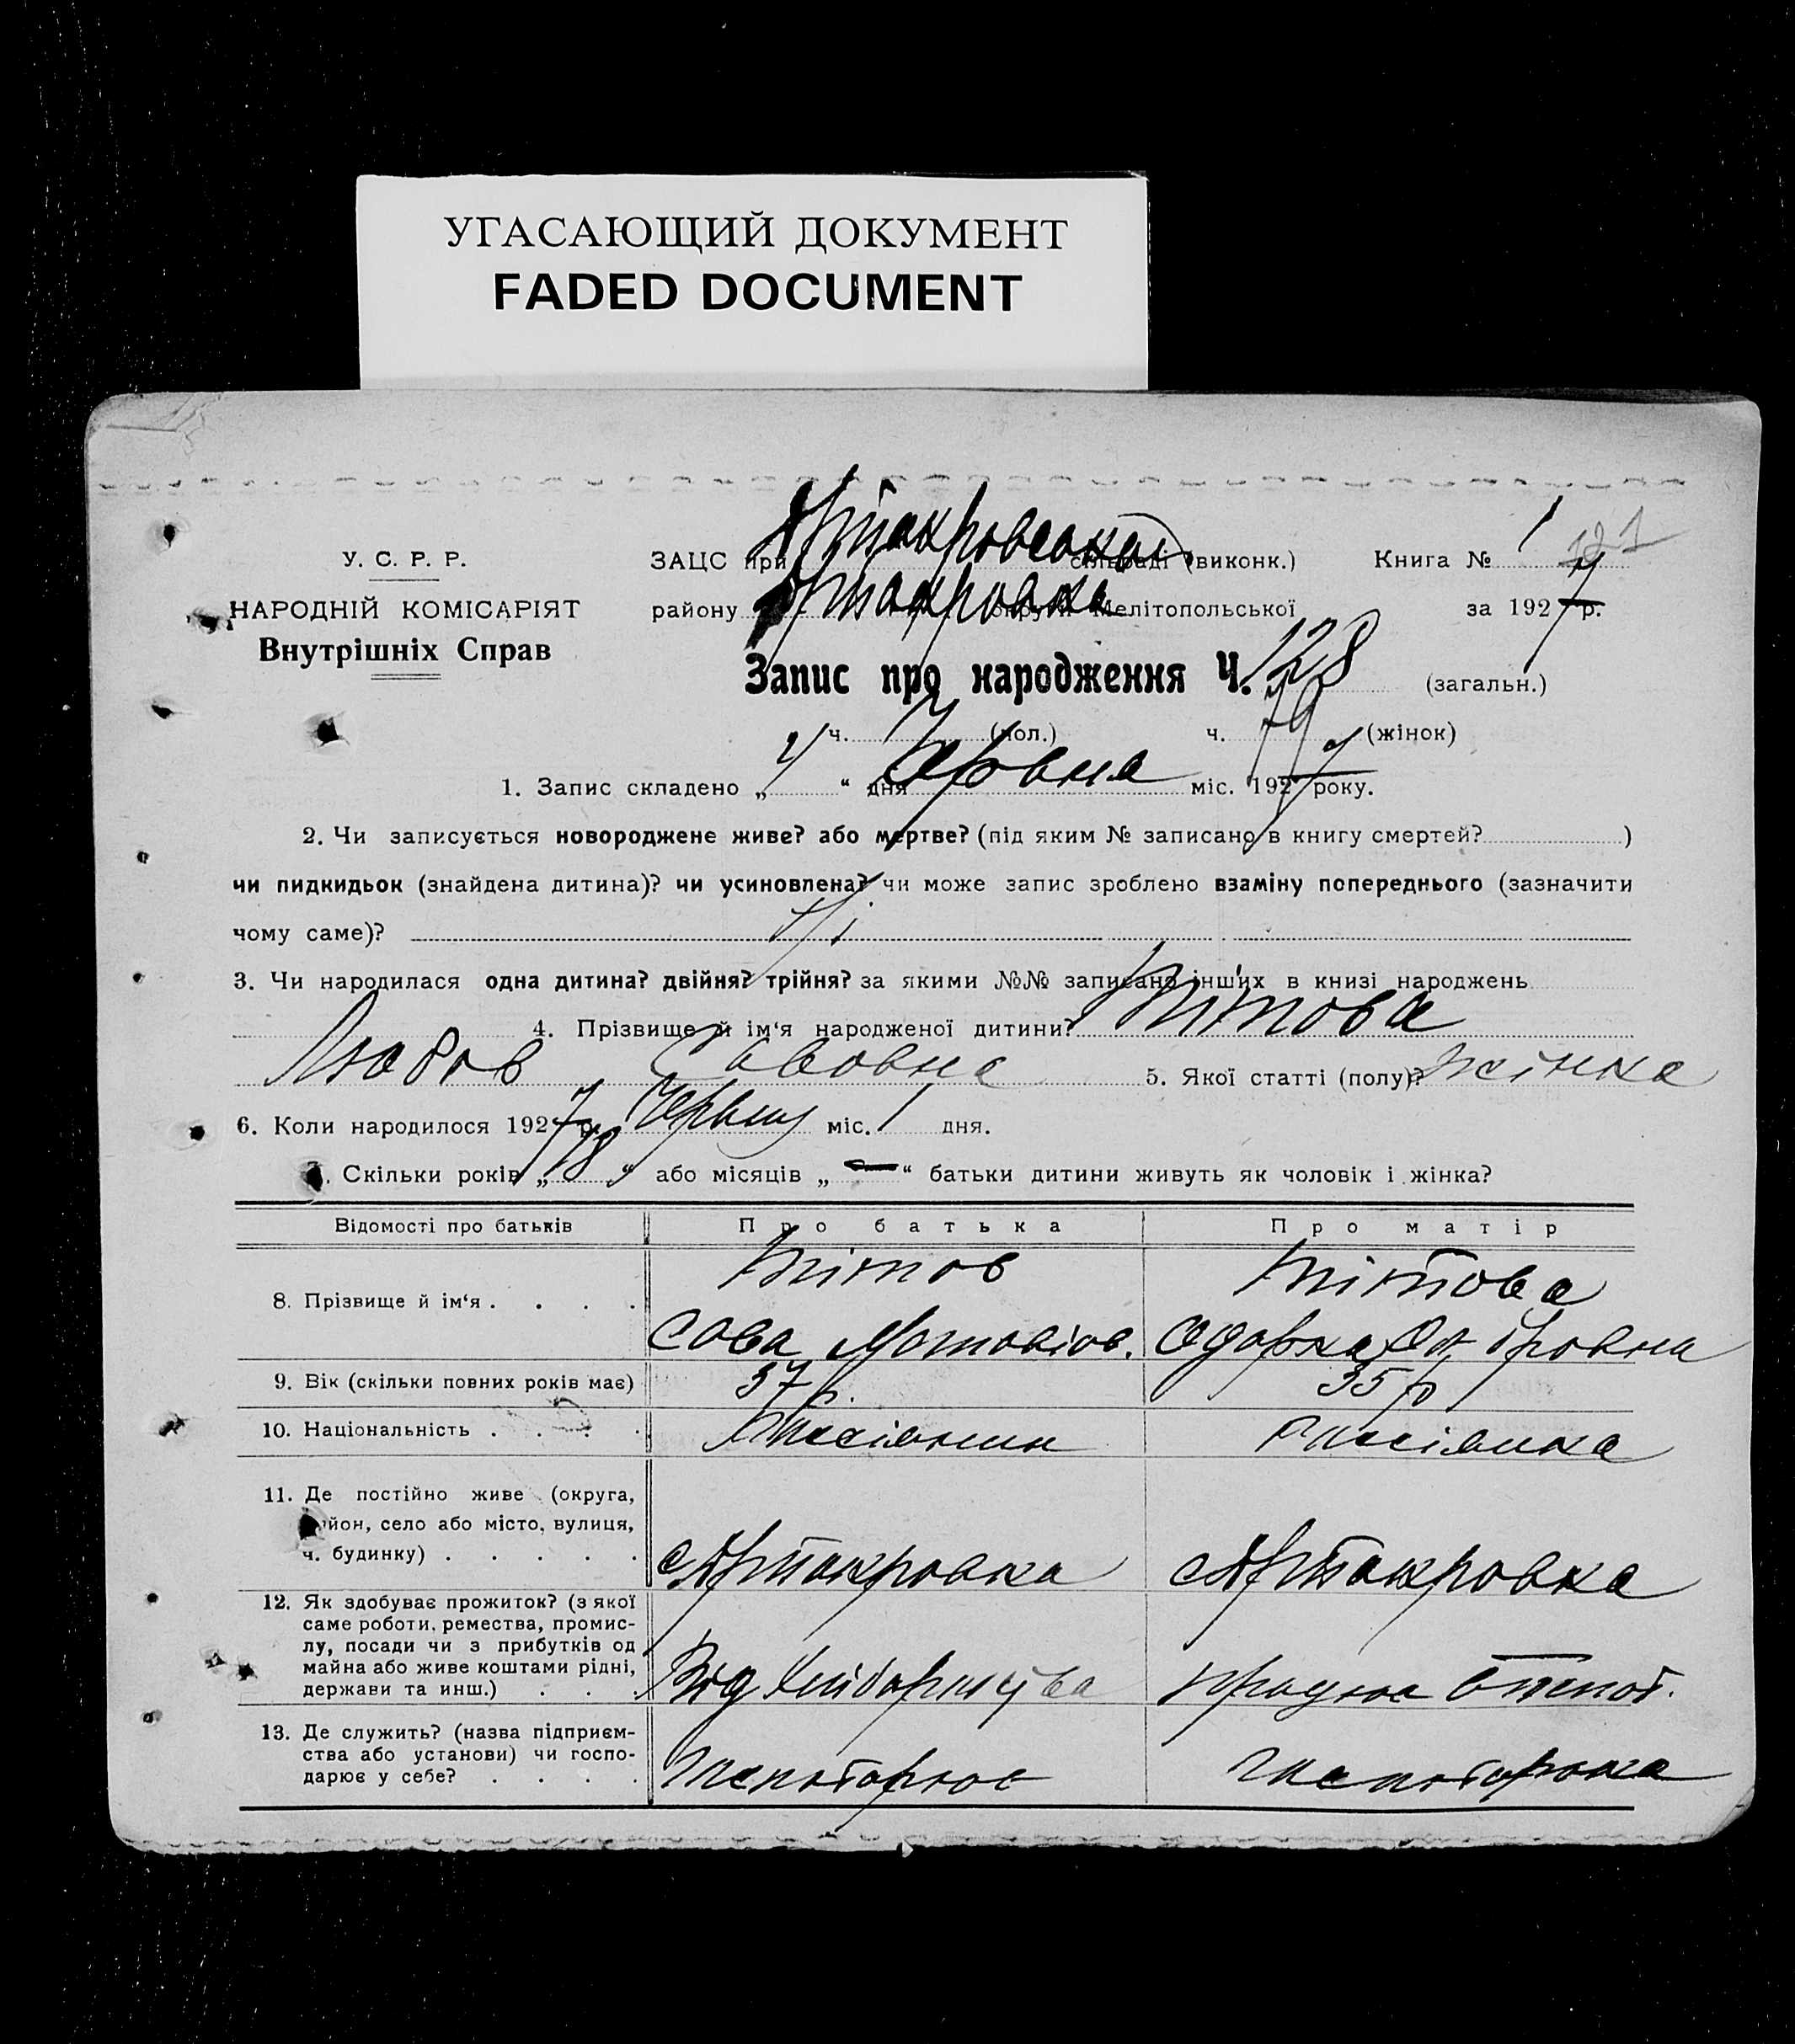 УГАСАЮЩИЙ ДОКУМЕНТ
FADED DOCUMENT
121
У. С. Р. Р.
НАРОДНІЙ КОМІСАРІЯТ
Внутрішніх Справ
ЗАЦС при сільраді (виконк.) Книга № 1
району округи Мелітопольської за 1927 р.
Запис про народження Ч. 128 (загальн.)
ч. (пол.) ч. 79 (жінок)
1. Запис складено „ 4 “ дня Червня міс. 1927 року.
2. Чи записується новороджене живе? або мертве? (під яким № записано в книгу смертей? )
чи пидкидьок (знайдена дитина)? чи усиновлена? чи може запис зроблено взаміну попереднього (зазначити
чому саме)? Ні
3. Чи народилася одна дитина? двійня? трійня? за якими №№ записано інших в книзі народжень
4. Прізвище й ім‘я народженої дитини? Тітова
Любов Савовна 5. Якої статті (полу)? жінка
6. Коли народилося 1927 р. Червня міс. 1 дня.
7. Скільки років „ 18 “ або місяців „ — “ батьки дитини живуть як чоловік і жінка?
Відомості про батьків Про батька Про матір
8. Прізвище й ім‘я . . . . Тітов Тітова
Сова Одарка
9. Вік (скільки повних років має) 37 р. 35 р
10. Національність . . . .
11. Де постійно живе (округа,
район, село або місто, вулиця,
ч. будинку) . . . . .
12. Як здобуває прожиток? (з якої
саме роботи, ремества, промис-
лу, посади чи з прибутків од
майна або живе коштами рідні,
держави та инш.) . . . Від
13. Де служить? (назва підприєм-
ства або установи) чи госпо-
дарює у себе? . . . .